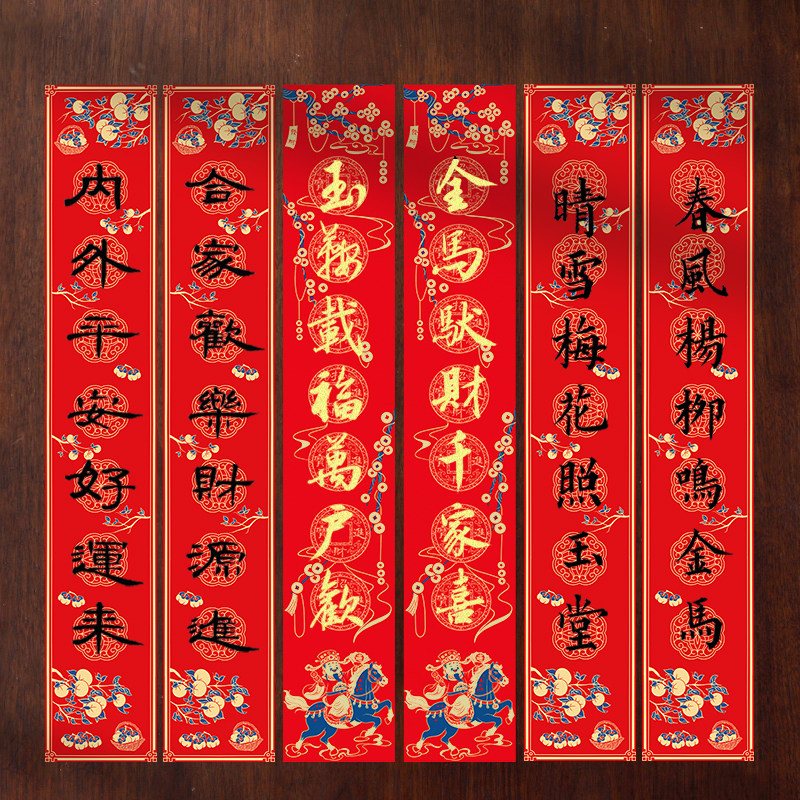 春風楊柳鳴金馬
晴雪梅花照玉堂
金馬馱財千家喜
玉鞍載福萬户歡
合家歡樂財源進
内外平安好運来